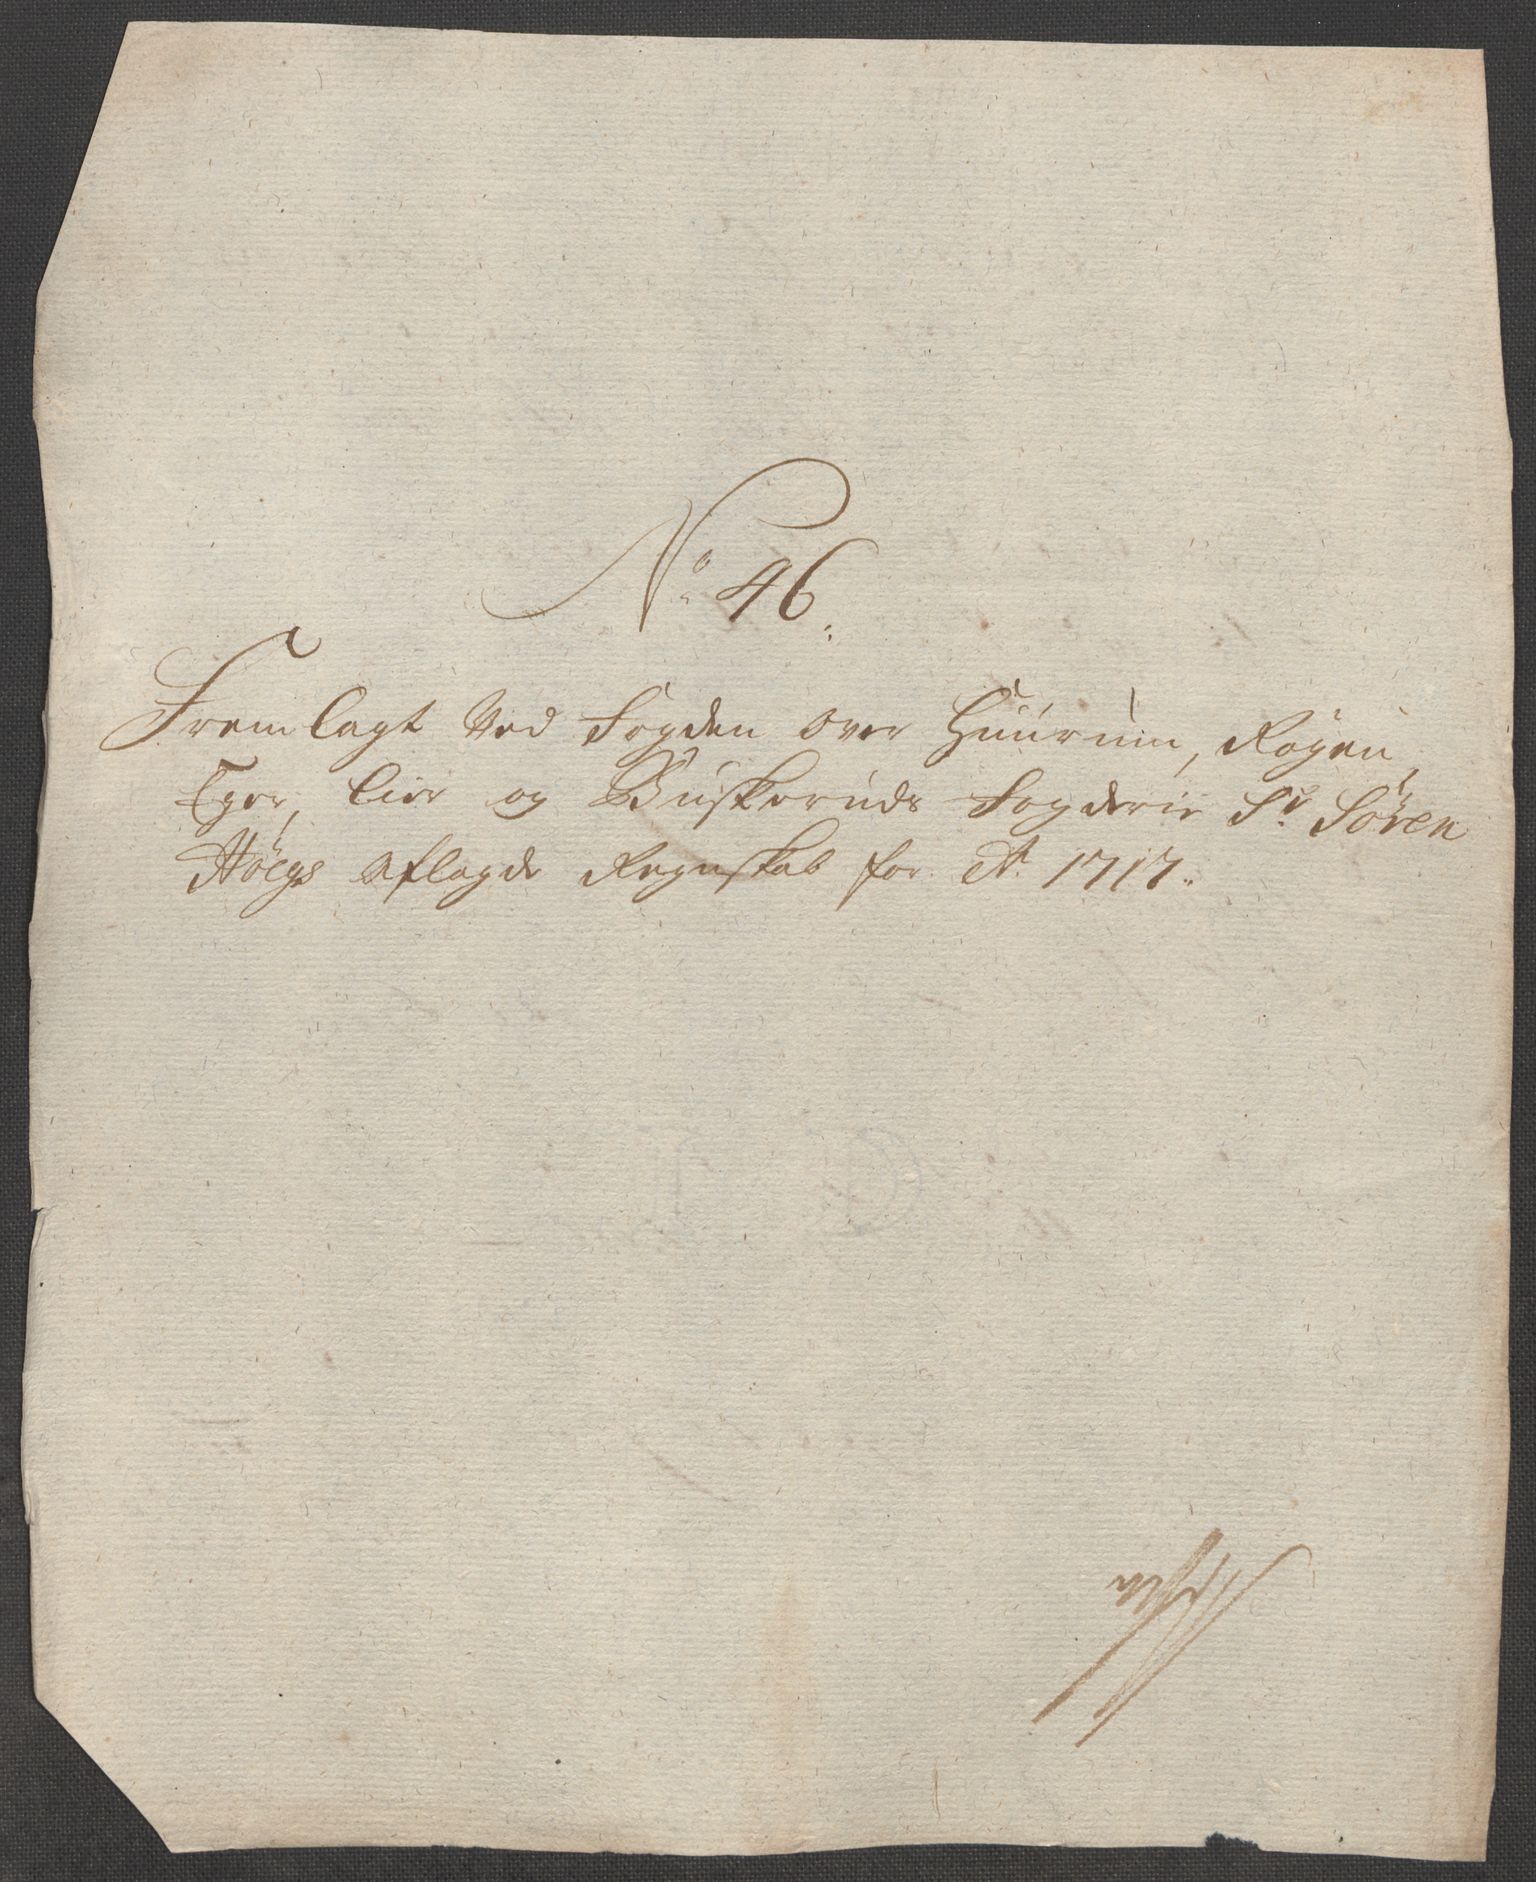 No 46.
Fremlagt Ved Fogden over Huurum, Røgen
Eger, Lier og Buskeruds Fogderie Sr. Søren
Høegs Aflagde Regnskab for Ao. 1717.